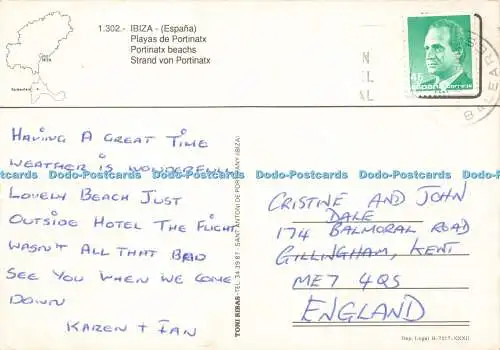 1.302.- IBIZA - (España)
Playas de Portinatx
Portinatx beachs
Strand von Portinatx
45
España correos
BALEARES
HAVING A GREAT TIME
WEATHER is WONDERFUL
LOVELY BEACH JUST
OUTSIDE HOTEL THE FLIGHT
WASN'T ALL THAT BAD
SEE YOU WHEN WE COME
DOWN
KAREN + IAN
TONI RIBAS - TEL. 34 19 87 - SANT ANTONI DE PORTMANY (IBIZA)
CRISTINE AND JOHN
DALE
174 BALMORAL ROAD
GILLINGHAM, KENT
ME7 4QS
ENGLAND
Dodo-Postcards Dodo-Postcards Dodo-Postcards Dodo-Postcards